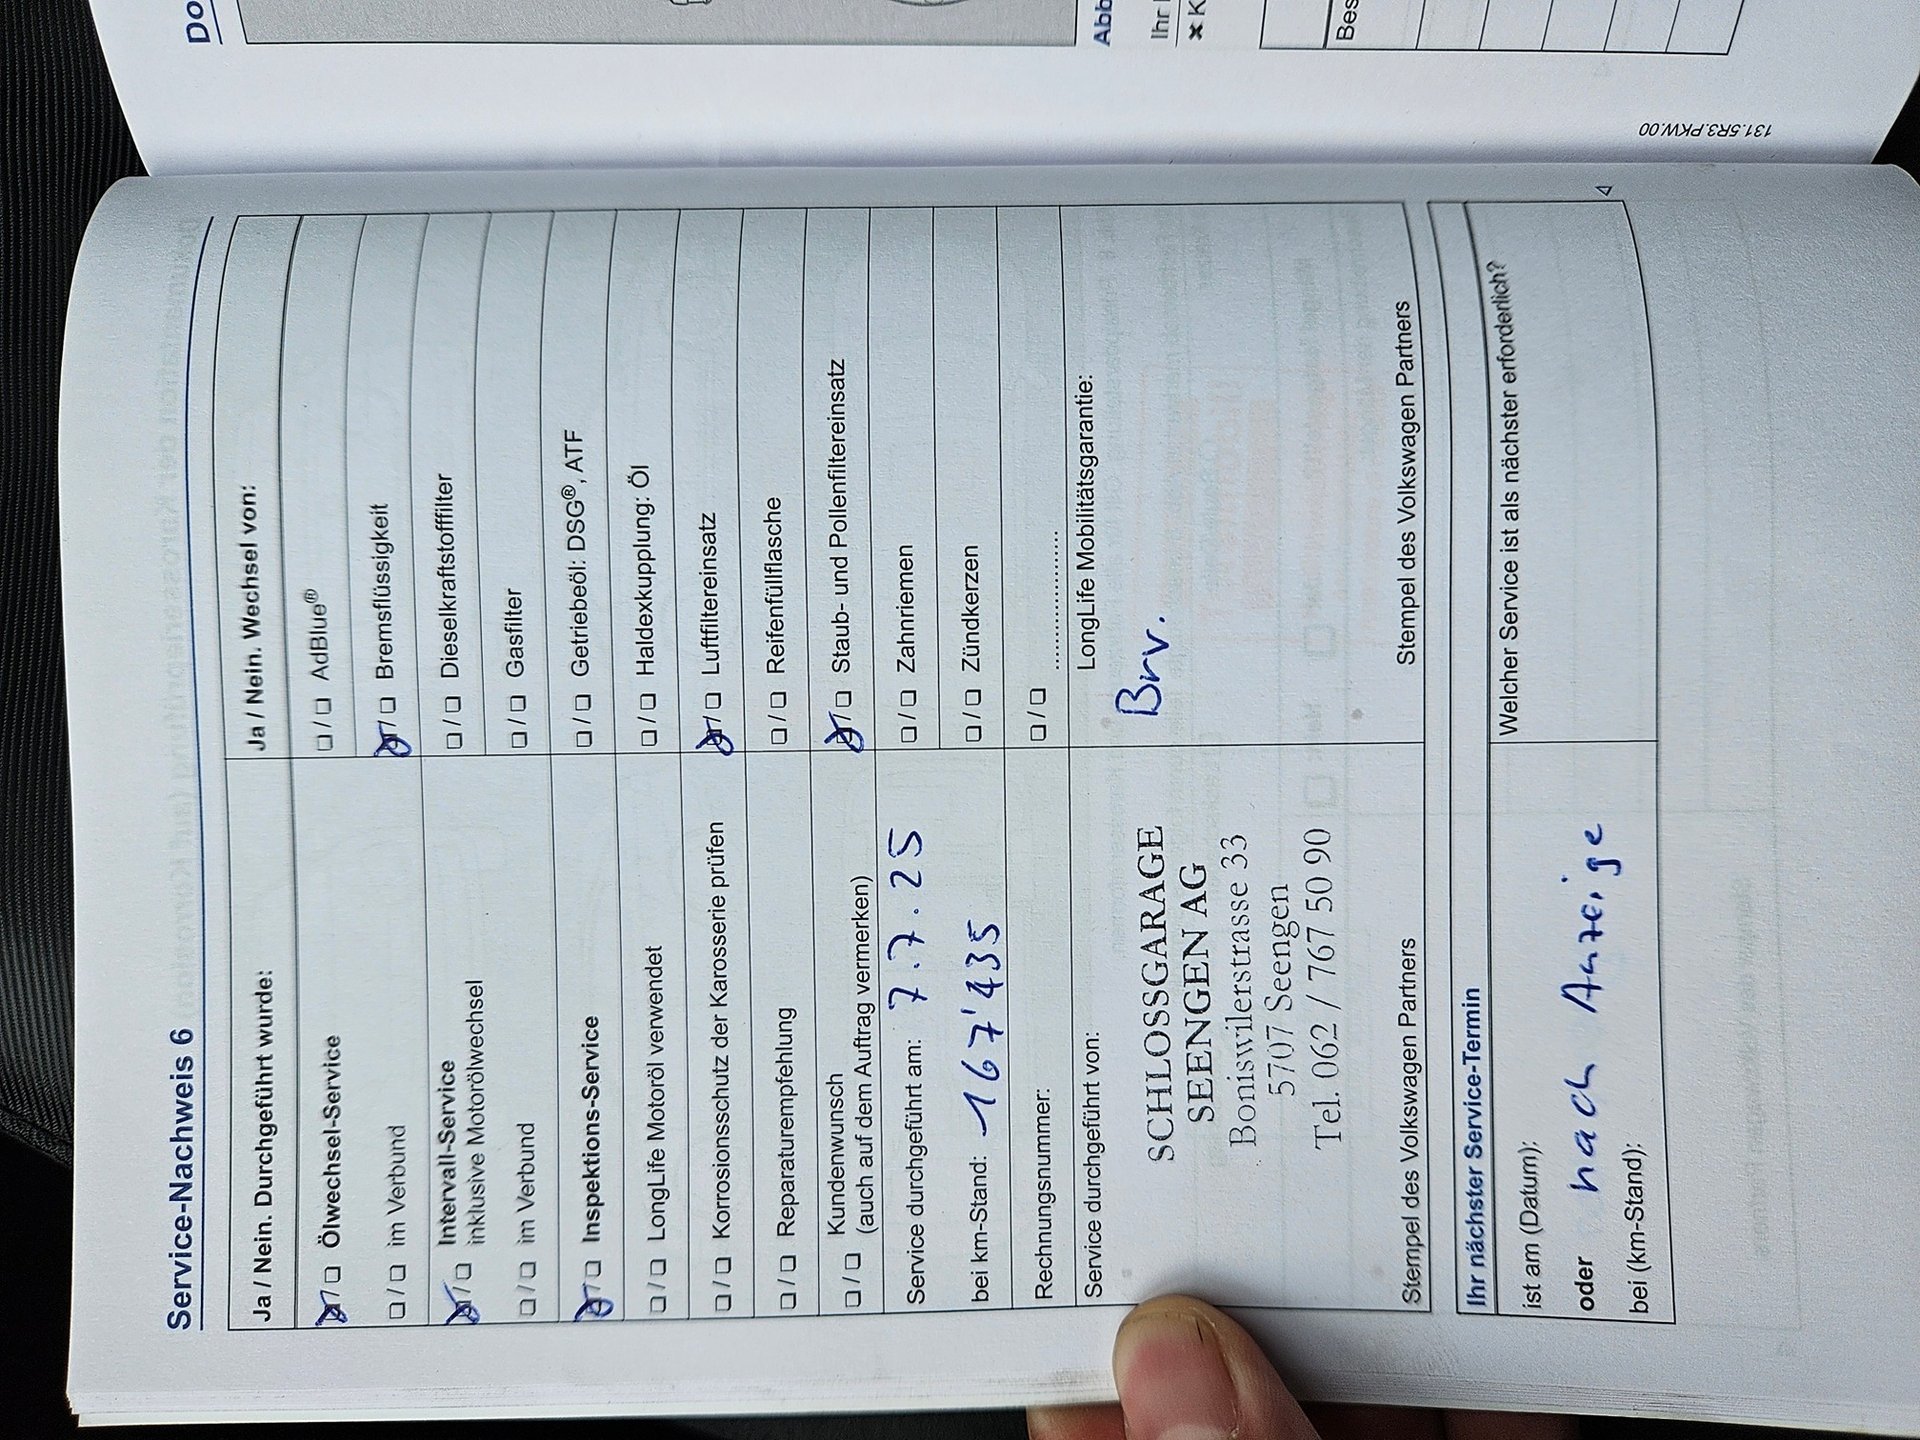 Service-Nachweis 6
Ja / Nein. Durchgeführt wurde:
Ölwechsel-Service
im Verbund
Intervall-Service
inklusive Motorölwechsel
im Verbund
Inspektions-Service
LongLife Motoröl verwendet
Korrosionsschutz der Karosserie prüfen
Reparaturempfehlung
Kundenwunsch
(auch auf dem Auftrag vermerken)
Service durchgeführt am: 7.7.25
bei km-Stand: 167'435
Rechnungsnummer:
Service durchgeführt von:
SCHLOSSGARAGE
SEENGEN AG
Boniswilerstrasse 33
5707 Seengen
Tel. 062 / 767 50 90
Stempel des Volkswagen Partners
Ja / Nein. Wechsel von:
AdBlue®
Bremsflüssigkeit
Dieselkraftstofffilter
Gasfilter
Getriebeöl: DSG®, ATF
Haldexkupplung: Öl
Luftfiltereinsatz
Reifenfüllflasche
Staub- und Pollenfiltereinsatz
Zahnriemen
Zündkerzen
....................
LongLife Mobilitätsgarantie:
Brv.
Stempel des Volkswagen Partners
Ihr nächster Service-Termin
ist am (Datum):
oder nach Anzeige
bei (km-Stand):
Welcher Service ist als nächster erforderlich?
131.5R3.PKW.00
Do
Abb
Ihr
K
Bes